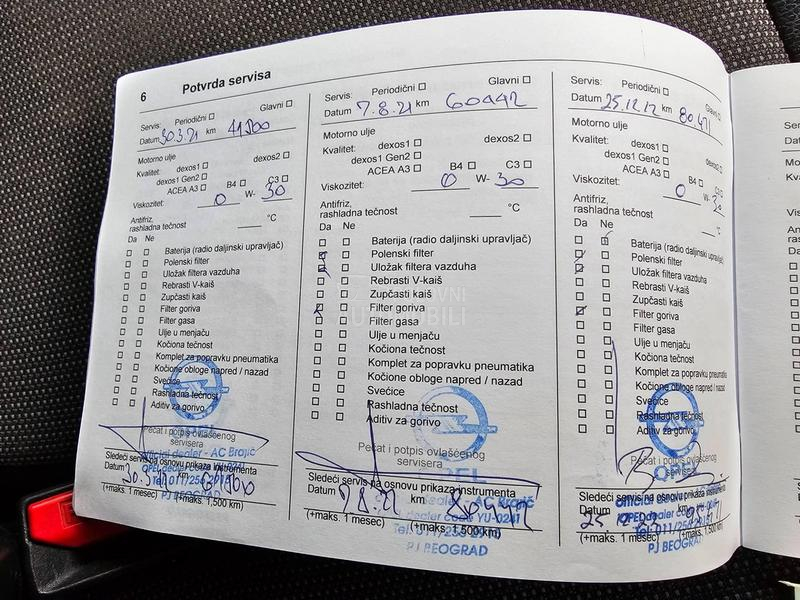 6 Potvrda servisa
Servis: Periodični Glavni
Datum 30.3.21 km
Motorno ulje
Kvalitet: dexos1 dexos2
dexos1 Gen2
ACEA A3 B4 C3
Viskozitet: 0 W- 30
Antifriz,
rashladna tečnost °C
Da Ne
Baterija (radio daljinski upravljač)
Polenski filter
Uložak filtera vazduha
Rebrasti V-kaiš
Zupčasti kaiš
Filter goriva
Filter gasa
Ulje u menjaču
Kočiona tečnost
Komplet za popravku pneumatika
Kočione obloge napred / nazad
Svećice
Rashladna tečnost
Aditiv za gorivo
Pečat i potpis ovlašćenog
servisera
OPEL
Official dealer - AC Brojić
Sledeći servis na osnovu prikaza instrumenta
Datum
(+maks. 1 mesec) (+maks. 1,500 km)
PJ BEOGRAD
Servis: Periodični Glavni
Datum 7.8.21 km 60442
Motorno ulje
Kvalitet: dexos1 dexos2
dexos1 Gen2
ACEA A3 B4 C3
Viskozitet: 0 W- 30
Antifriz,
rashladna tečnost °C
Da Ne
Baterija (radio daljinski upravljač)
Polenski filter
Uložak filtera vazduha
Rebrasti V-kaiš
Zupčasti kaiš
Filter goriva
Filter gasa
Ulje u menjaču
Kočiona tečnost
Komplet za popravku pneumatika
Kočione obloge napred / nazad
Svećice
Rashladna tečnost
Aditiv za gorivo
Pečat i potpis ovlašćenog
servisera
OPEL
Sledeći servis na osnovu prikaza instrumenta
Datum
dealer code YU-0241
(+maks. 1 mesec) (+maks. 1,500 km)
PJ BEOGRAD
Servis: Periodični Glavni
Datum 25.12.12 km
Motorno ulje
Kvalitet: dexos1 dexos2
dexos1 Gen2
ACEA A3 B4 C3
Viskozitet: 0 W- 30
Antifriz,
rashladna tečnost °C
Da Ne
Baterija (radio daljinski upravljač)
Polenski filter
Uložak filtera vazduha
Rebrasti V-kaiš
Zupčasti kaiš
Filter goriva
Filter gasa
Ulje u menjaču
Kočiona tečnost
Komplet za popravku pneumatika
Kočione obloge napred / nazad
Svećice
Rashladna tečnost
Aditiv za gorivo
Pečat i potpis ovlašćenog
servisera
OPEL
Sledeći servis na osnovu prikaza instrumenta
Datum
(+maks. 1 mesec) (+maks. 1,500 km)
PJ BEOGRAD